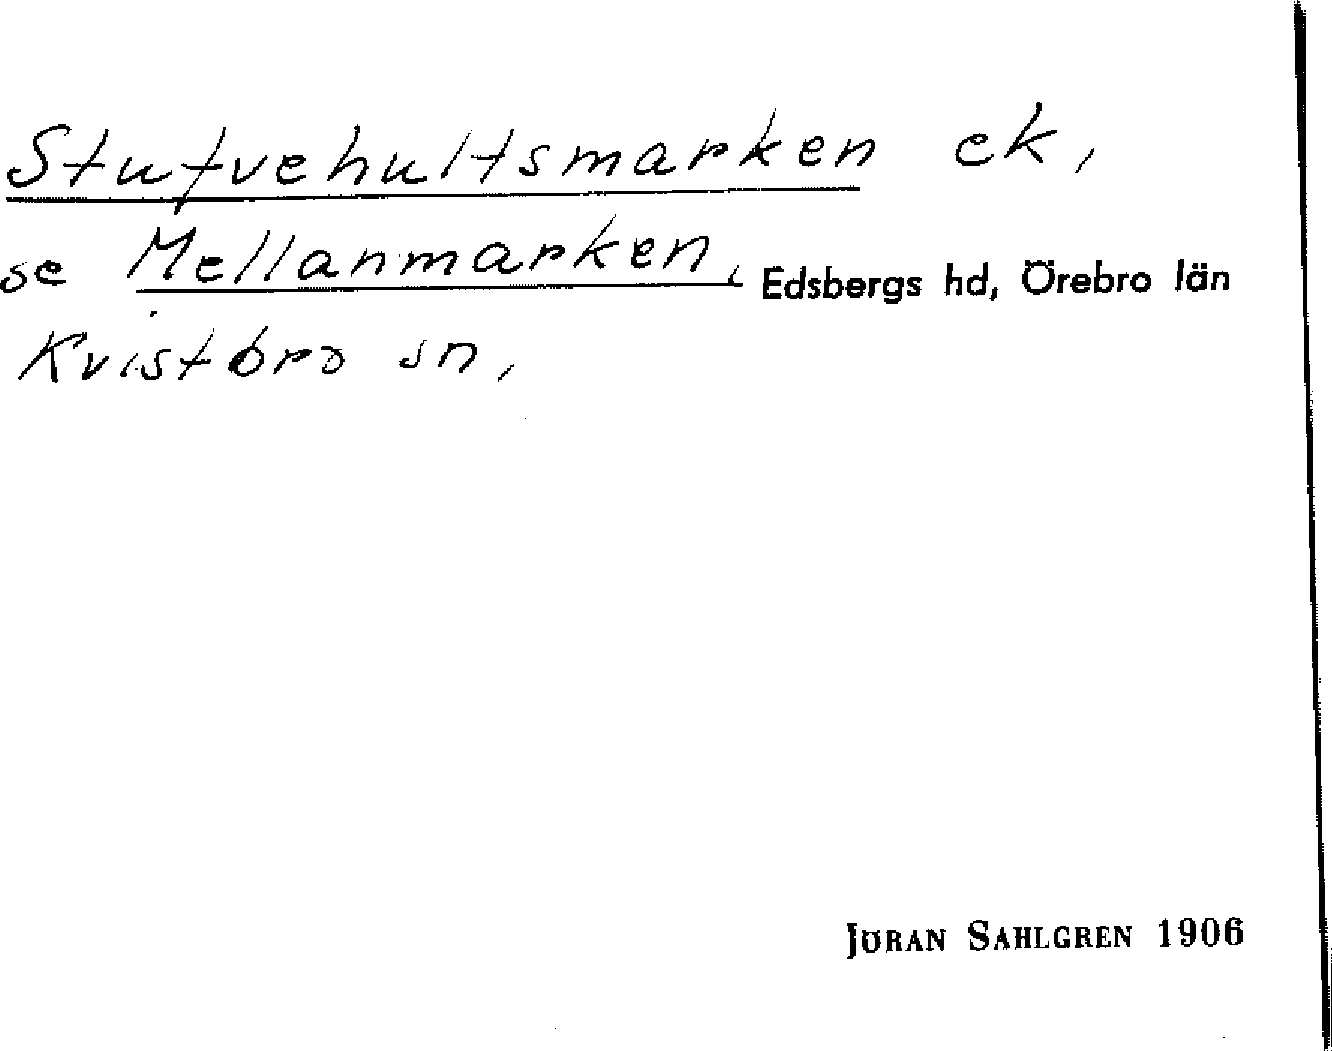 Stufvehultsmarken ek,
se Mellanmarken, Edsbergs hd, Örebro län
Kvistbro sn,
JÖRAN SAHLGREN 1906